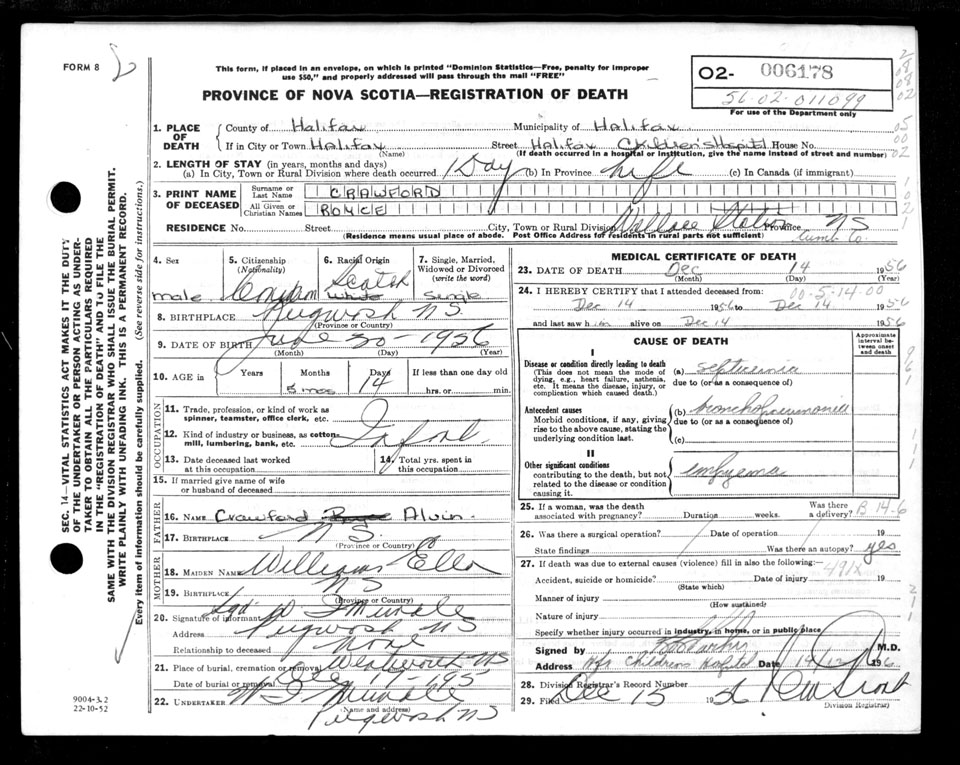 FORM 8
This form, if placed in an envelope, on which is printed "Dominion Statistics—Free, penalty for improper
use $50," and properly addressed will pass through the mail "FREE"
PROVINCE OF NOVA SCOTIA—REGISTRATION OF DEATH
02- 006178
56-02-011099
For use of the Department only
SEC. 14—VITAL STATISTICS ACT MAKES IT THE DUTY
OF THE UNDERTAKER OR PERSON ACTING AS UNDER-
TAKER TO OBTAIN ALL THE PARTICULARS REQUIRED
IN THE "REGISTRATION OF DEATH" AND TO FILE THE
SAME WITH THE DIVISION REGISTRAR WHO SHALL ISSUE THE BURIAL PERMIT.
WRITE PLAINLY WITH UNFADING INK. THIS IS A PERMANENT RECORD.
Every item of information should be carefully supplied. (See reverse side for instructions.)
1. PLACE OF DEATH
County of Halifax Municipality of Halifax
If in City or Town Halifax Street Halifax Children's Hospital House No.
(Name) (If death occurred in a hospital or institution, give the name instead of street and number)
2. LENGTH OF STAY (in years, months and days)
(a) In City, Town or Rural Division where death occurred 1 Day (b) In Province Life (c) In Canada (if immigrant)
3. PRINT NAME OF DECEASED
Surname or Last Name CRAWFORD
All Given or Christian Names ROYCE
RESIDENCE No. Street City, Town or Rural Division Wallace Station Province NS
(Residence means usual place of abode. Post Office Address for residents in rural parts not sufficient) Cumb. Co.
4. Sex male
5. Citizenship (Nationality) Canadian
6. Racial Origin Scotch White
7. Single, Married, Widowed or Divorced (write the word) Single
8. BIRTHPLACE Pugwash N.S.
(Province or Country)
9. DATE OF BIRTH June 30 - 1956
(Month) (Day) (Year)
10. AGE in Years Months Days If less than one day old
5 mos 14 hrs. or min.
OCCUPATION
11. Trade, profession, or kind of work as spinner, teamster, office clerk, etc.
12. Kind of industry or business, as cotton-mill, lumbering, bank, etc. Infant
13. Date deceased last worked at this occupation
14. Total yrs. spent in this occupation
15. If married give name of wife or husband of deceased
FATHER
16. NAME Crawford Alvin
17. BIRTHPLACE N.S.
(Province or Country)
MOTHER
18. MAIDEN NAME Williams Ella
19. BIRTHPLACE NS
(Province or Country)
20. Signature of informant Sgd.
Address Pugwash NS
Relationship to deceased None
21. Place of burial, cremation or removal NS
Date of burial or removal Dec 17 - 195
22. UNDERTAKER
(Name and address)
Pugwash NS
9004-3.2
22-10-52
MEDICAL CERTIFICATE OF DEATH
23. DATE OF DEATH Dec 14 1956
(Month) (Day)
24. I HEREBY CERTIFY that I attended deceased from 00-5-14-00
Dec 14 1956 to Dec 14 1956
and last saw him alive on Dec 14 1956
CAUSE OF DEATH
Approximate interval between onset and death
I
Disease or condition directly leading to death
(This does not mean the mode of dying, e.g., heart failure, asthenia, etc. It means the disease, injury, or complication which caused death.)
(a) septicemia
due to (or as a consequence of)
Antecedent causes
Morbid conditions, if any, giving rise to the above cause, stating the underlying condition last.
(b) bronchopneumonia
due to (or as a consequence of)
(c)
II
Other significant conditions
contributing to the death, but not related to the disease or condition causing it.
empyema
25. If a woman, was the death associated with pregnancy? Duration weeks. Was there a delivery? B 14-6
26. Was there a surgical operation? Date of operation 19
State findings Was there an autopsy? yes
27. If death was due to external causes (violence) fill in also the following:
491X
Accident, suicide or homicide? Date of injury 19
(State which)
Manner of injury
(How sustained)
Nature of injury
Specify whether injury occurred in industry, in home, or in public place
Signed by M.D.
Address Hfx Childrens Hospital Date
28. Division Registrar's Record Number
29. Filed Dec 15 1956
Division Registrar)